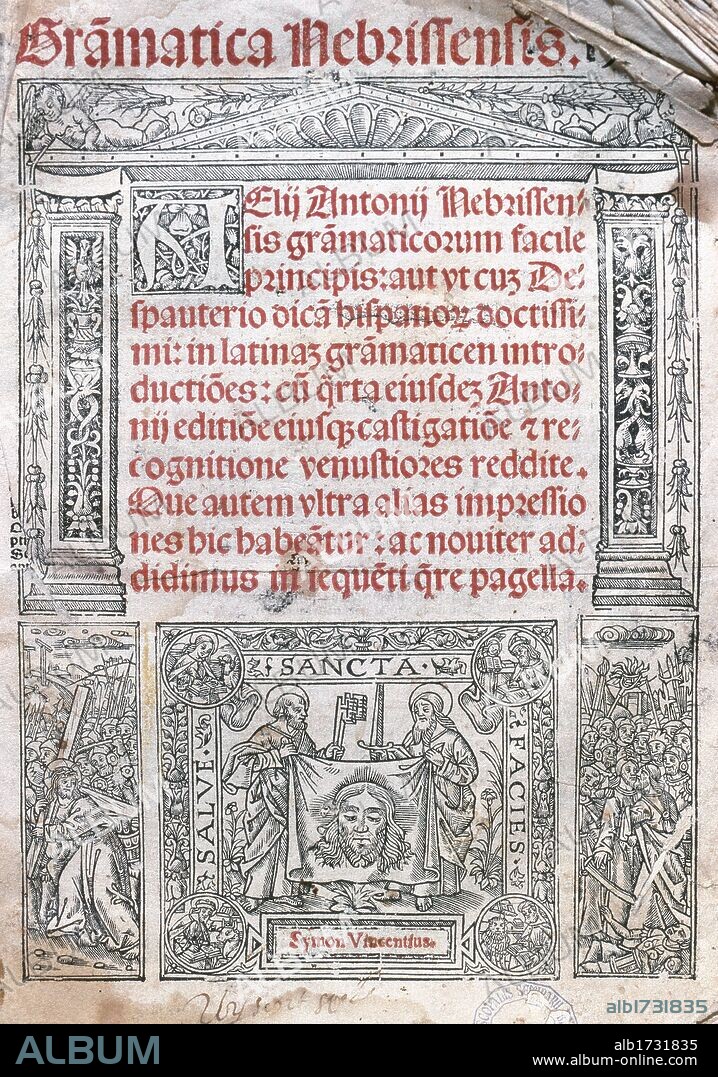 Grãmatica Nebrissensis.
AElij Antonij Nebrissen-
sis grãmaticorum facile
principis: aut vt cuʒ De-
spauterio dicã hispanoꝝ doctissi-
mi: in latinaʒ grãmaticen intro-
ductiões: cũ q̃rta eiusdeʒ Anto-
nij editiõe eiusqʒ castigatiõe ⁊ re-
cognitione venustiores reddite.
Que autem vltra alias impressio
nes hic habeãtur: ac nouiter ad-
didimus in sequẽti q̃re pagella.
SANCTA
SALVE
FACIES
Symon Vincentius.
ALBUM
alb1731835
ALBUM
alb1731835
www.album-online.com